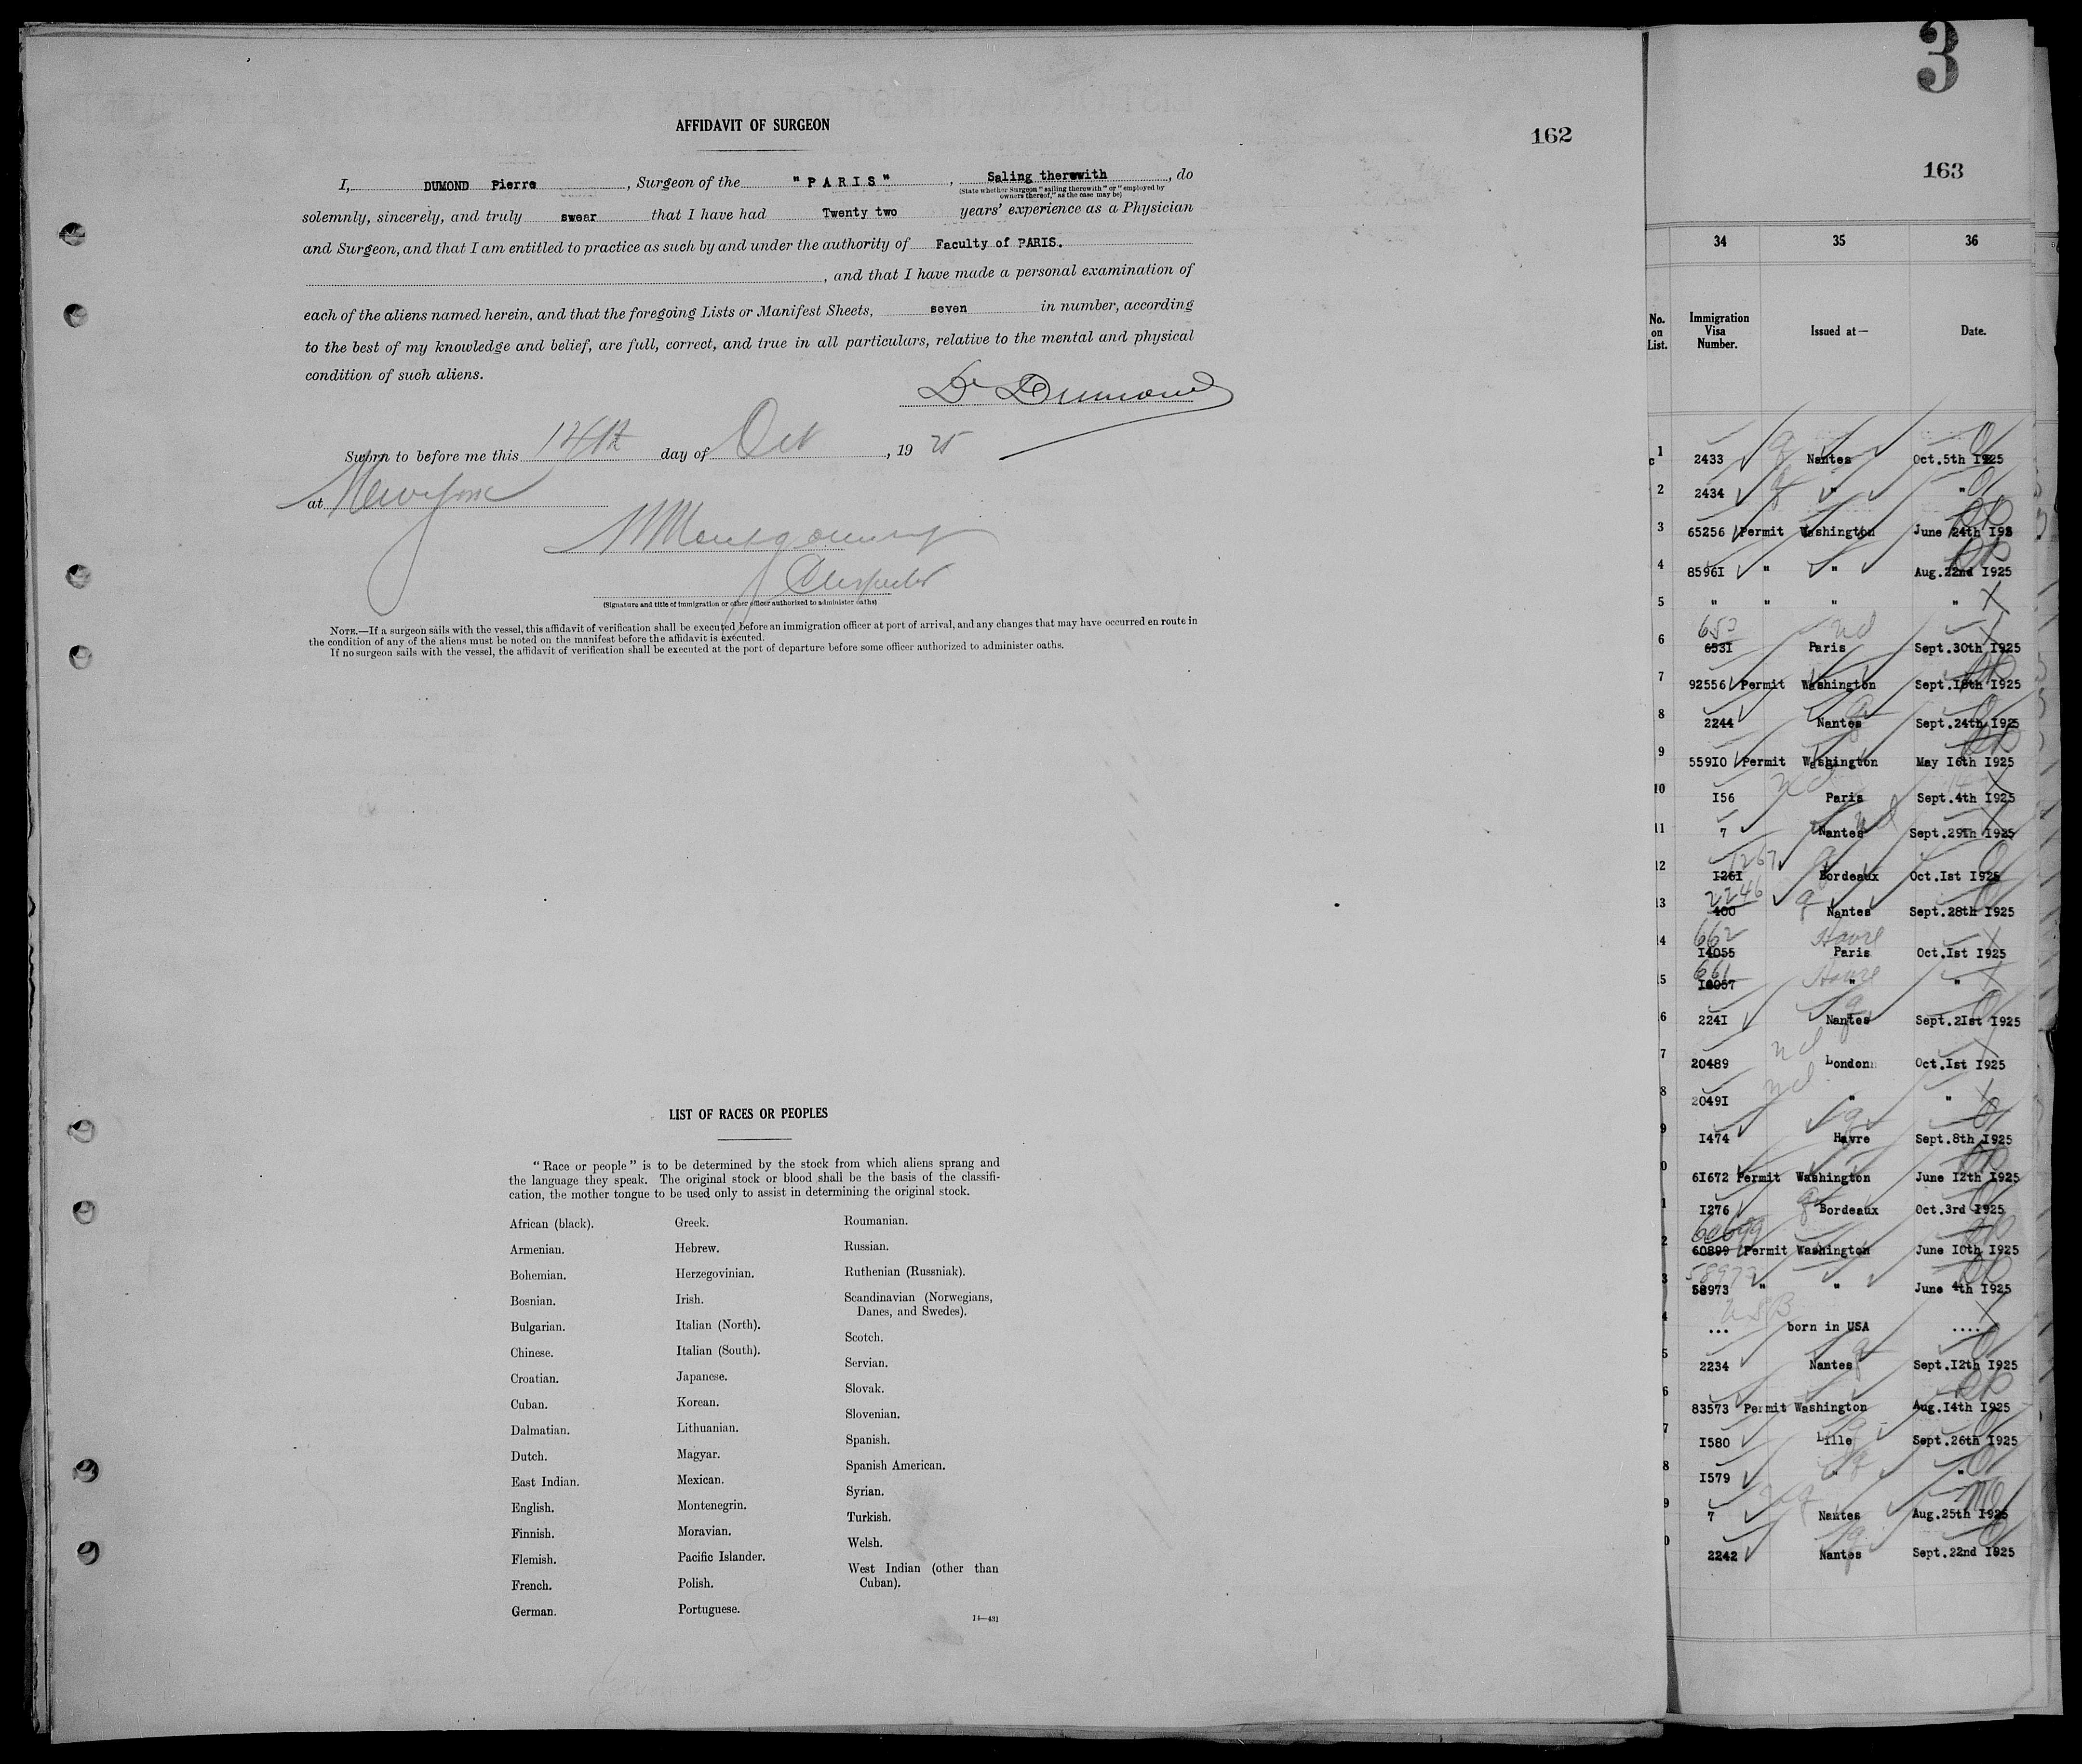 AFFIDAVIT OF SURGEON
162
I, DUMOND Pierre, Surgeon of the "PARIS", Saling therewith, do
(State whether Surgeon "sailing therewith" or "employed by
owners thereof," as the case may be)
solemnly, sincerely, and truly swear that I have had Twenty two years' experience as a Physician
and Surgeon, and that I am entitled to practice as such by and under the authority of Faculty of PARIS.
, and that I have made a personal examination of
each of the aliens named herein, and that the foregoing Lists or Manifest Sheets, seven in number, according
to the best of my knowledge and belief, are full, correct, and true in all particulars, relative to the mental and physical
condition of such aliens.
Dr Dumond
Sworn to before me this 14th day of Oct, 19 25
at New York
Montgomery
Inspector
(Signature and title of immigration or other officer authorized to administer oaths)
NOTE.—If a surgeon sails with the vessel, this affidavit of verification shall be executed before an immigration officer at port of arrival, and any changes that may have occurred en route in
the condition of any of the aliens must be noted on the manifest before the affidavit is executed.
If no surgeon sails with the vessel, the affidavit of verification shall be executed at the port of departure before some officer authorized to administer oaths.
LIST OF RACES OR PEOPLES
"Race or people" is to be determined by the stock from which aliens sprang and
the language they speak. The original stock or blood shall be the basis of the classifi-
cation, the mother tongue to be used only to assist in determining the original stock.
African (black).
Armenian.
Bohemian.
Bosnian.
Bulgarian.
Chinese.
Croatian.
Cuban.
Dalmatian.
Dutch.
East Indian.
English.
Finnish.
Flemish.
French.
German.
Greek.
Hebrew.
Herzegovinian.
Irish.
Italian (North).
Italian (South).
Japanese.
Korean.
Lithuanian.
Magyar.
Mexican.
Montenegrin.
Moravian.
Pacific Islander.
Polish.
Portuguese.
Roumanian.
Russian.
Ruthenian (Russniak).
Scandinavian (Norwegians,
Danes, and Swedes).
Scotch.
Servian.
Slovak.
Slovenian.
Spanish.
Spanish American.
Syrian.
Turkish.
Welsh.
West Indian (other than
Cuban).
14—431
3
163
34 35 36
No. on List. Immigration Visa Number. Issued at— Date.
1 c 2433 Nantes Oct.5th I925
2 2434 " "
3 65256 Permit Washington June 24th I92
4 8596I " " Aug.22nd I925
5 " " " "
653 nd
6 653I Paris Sept.30th I925
7 92556 Permit Washington Sept.I8th I925
8 2244 Nantes Sept.24th I925
9 559I0 Permit Washington May I6th I925
10 I56 Paris Sept.4th I925
11 7 Nantes Sept.29th I925
1267
12 I26I Bordeaux Oct.Ist I925
2246
13 400 Nantes Sept.28th I925
662 Havre
14 I4055 Paris Oct.Ist I925
661 Havre
5 I4057 " "
6 224I Nantes Sept.2Ist I925
7 20489 London Oct.Ist I925
8 2049I " "
9 I474 Havre Sept.8th I925
0 6I672 Permit Washington June I2th I925
1 I276 Bordeaux Oct.3rd I925
60699
2 60899 Permit Washington June I0th I925
58973
3 58973 " " June 4th I925
USB
4 ... born in USA ....
5 2234 Nantes Sept.I2th I925
6 83573 Permit Washington Aug.I4th I925
7 I580 Lille Sept.26th I925
8 I579 " "
9 7 Nantes Aug.25th I925
0 2242 Nantes Sept.22nd I925